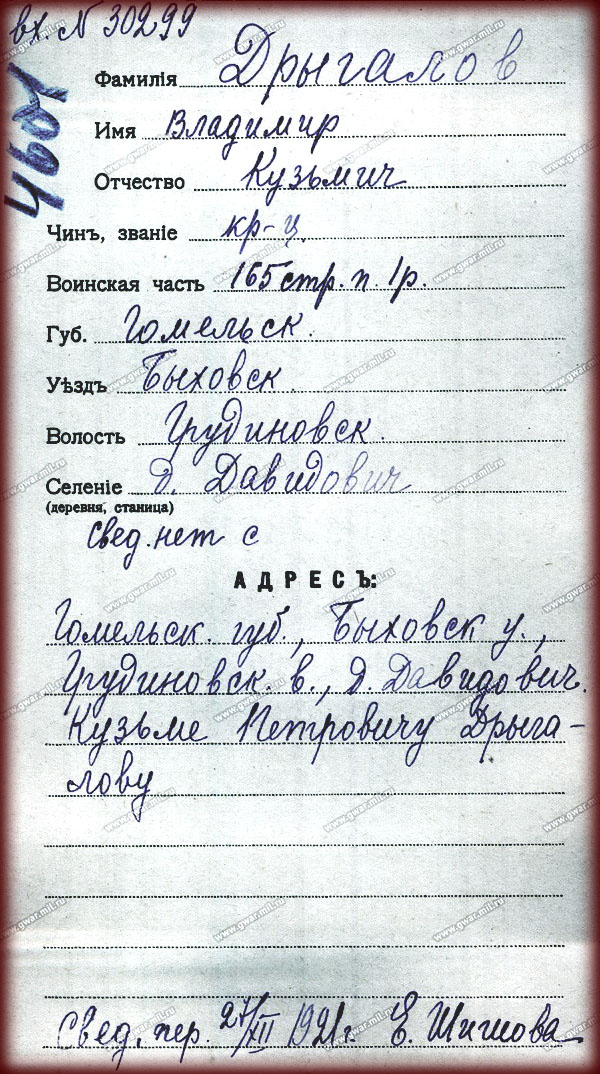 вх. N 30299
4601
Фамилія Дрыгалов
Имя Владимир
Отчество Кузьмич
Чинъ, званіе кр-ц.
Воинская часть 165 стр. п. 1 р.
Губ. Гомельск.
Уѣздъ Быховск.
Волость Грудиновск.
Селеніе д. Давидович
(деревня, станица)
Свед. нет с
АДРЕСЪ:
Гомельск. губ., Быховск у.,
Грудиновск. в., д. Давидович.
Кузьме Петровичу Дрыга-
лову
Свед. пер. 27/XII 1921 г. Е. Шишова
www.gwar.mil.ru